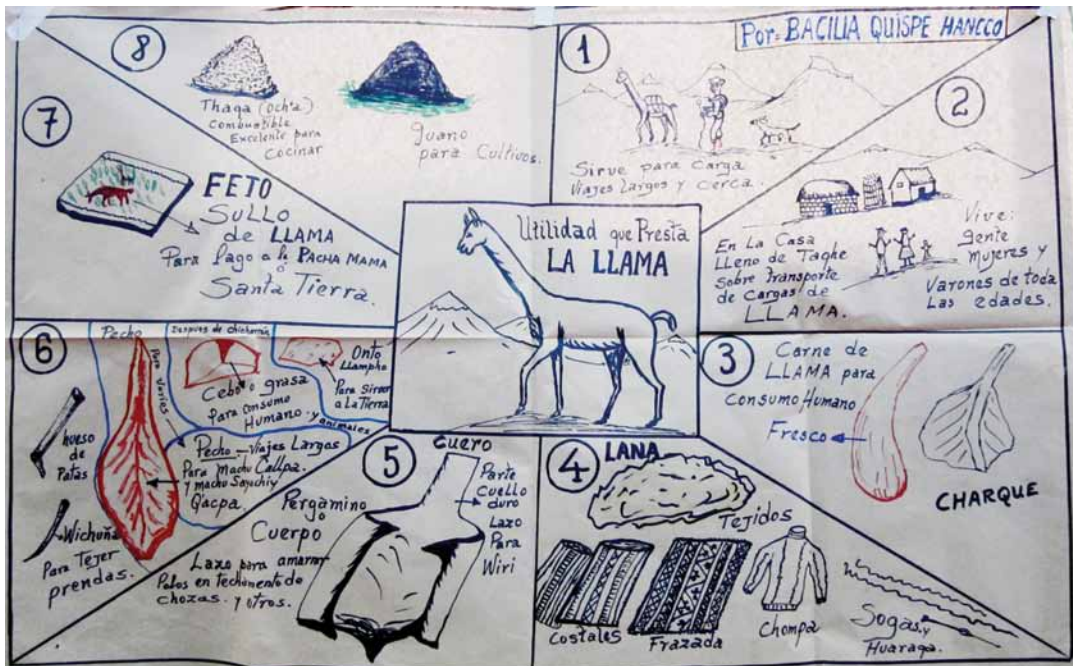 Por: BACILIA QUISPE HANCCO
Utilidad que Presta
LA LLAMA
1
Sirve para Carga
Viajes Largos y cerca.
2
En La Casa
Lleno de Taqhe
Sobre transporte
de Cargas de
LLAMA.
Vive:
gente
mujeres y
Varones de toda
Las edades.
3
Carne de
LLAMA para
Consumo Humano
Fresco
CHARQUE
4
LANA
Tejidos
Costales
Frazada
Chompa
Sogas y
Huaraqa.
5
Cuero
Parte
Cuello
duro
Lazo
Para
Wiri
Pergamino
Cuerpo
Lazo para amarrar
Palos en techamento de
chozas. y otros.
6
Pecho
Para Varios
hueso
de
Patas
Wichuña
Para Tejer
prendas.
Despues de chicharrón
Cebo o grasa
para consumo
Humano y
animales
Onto
LLampho
Para Sirver
a La Tierra
Pecho - Viajes Largos
Para machu Callpa.
y machu
Qacpa.
7
FETO
SULLO
de LLAMA
Para Pago a la PACHA MAMA
o
Santa Tierra.
8
Thaqa (Och'a)
Combustible
Excelente para
Cocinar
guano
para Cultivos.